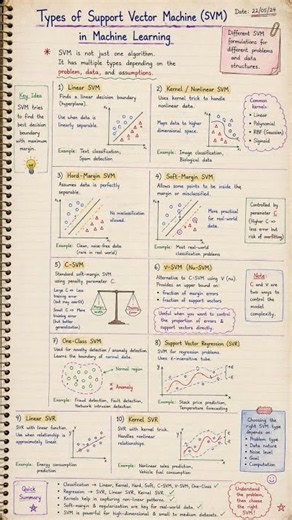 Types of Support Vector Machine (SVM)
in Machine Learning
Date: 22/05/24
SVM is not just one algorithm.
It has multiple types depending on the
problem, data, and assumptions.
Different SVM
formulations for different
problems and data
structures.
Key Idea
SVM tries to
find the best
decision boundary
with maximum
margin.
1) Linear SVM
Finds a linear decision boundary
(hyperplane).
Use when data is
linearly separable.
Example: Text classification,
Spam detection
2) Kernel / Nonlinear SVM
Uses kernel trick to handle
nonlinear data.
Maps data to higher
dimensional space.
Example: Image classification,
Biological data
Common
kernels:
• Linear
• Polynomial
• RBF (Gaussian)
• Sigmoid
3) Hard-Margin SVM
Assumes data is perfectly
separable.
No misclassification
allowed.
Example: Clean, noise-free data
(rare in real world)
4) Soft-Margin SVM
Allows some points to be inside the
margin or misclassified.
More practical
for real-world
data.
Example: Most real-world
classification problems
Controlled by
parameter C
(Higher C =
less error but
risk of overfitting)
5) C-SVM
Standard soft-margin SVM
using penalty parameter C.
Large C => Less
training error
(but may overfit)
Small C => More
training error
(but better
generalization)
6) ν-SVM (Nu-SVM)
Alternative to C-SVM using ν (nu)
Provides an upper bound on:
• fraction of margin errors
• fraction of support vectors
Useful when you want to control
the proportion of errors &
support vectors directly.
Note:
C and ν are
two ways to
control the
model complexity.
7) One-Class SVM
Used for novelty detection / anomaly detection.
Learns the boundary of normal data.
Normal region
Anomaly
Example: Fraud detection, Fault detection,
Network intrusion detection
8) Support Vector Regression (SVR)
SVM for regression problems.
Uses ε-insensitive tube.
Example: Stock price prediction,
Temperature forecasting
9) Linear SVR
SVR with linear function.
Use when relationship is
approximately linear.
Example: Energy consumption
prediction
10) Kernel SVR
SVR with kernel trick.
Handles nonlinear
relationships.
Example: Nonlinear sales prediction,
Vehicle fuel consumption
Choosing the
right SVM type
depends on:
• Problem type
• Data nature
• Noise level
• Goal
• Computation
Quick
Summary
Classification → Linear, Kernel, Hard, Soft, C-SVM, ν-SVM, One-Class
Regression → SVR, Linear SVR, Kernel SVR
Kernels help in capturing non-linear patterns.
Soft-margin & regularization are key for real-world data.
SVM is powerful for high-dimensional & small to medium datasets.
Understand the
problem, then
choose the right
SVM!